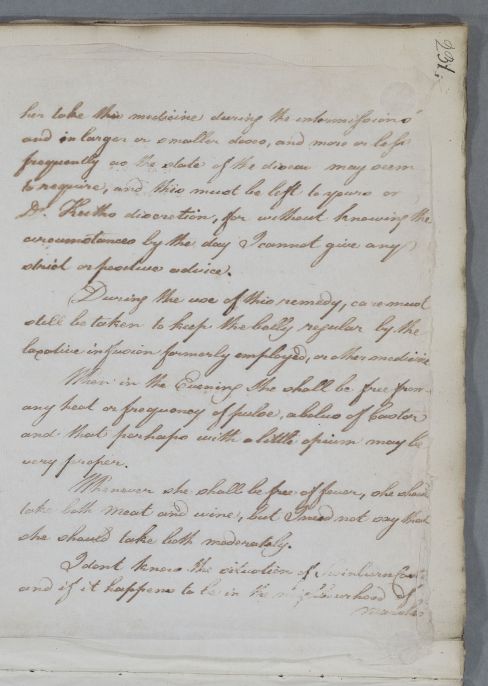 231.
her take this medicine during the intermissions
and in larger or smaller doses, and more or less
frequently as the state of the disease may seem
to require, and this must be left to yours or
Dr. Keiths discretion, for without knowing the
circumstances by the day I cannot give any
strict or positive advice.
During the use of this remedy, care must
still be taken to keep the belly regular by the
laxative infusion formerly employed, or other medicine
When in the Evening she shall be free from
any heat or frequency of pulse, a bolus of Castor
and that perhaps with a little opium may be
very proper.
Whenever she shall be free of fever, she should
take both meat and wine, but I need not say that
she should take both moderately.
I dont know the situation of
and if it happens to be in the neighbourhood of
marshes